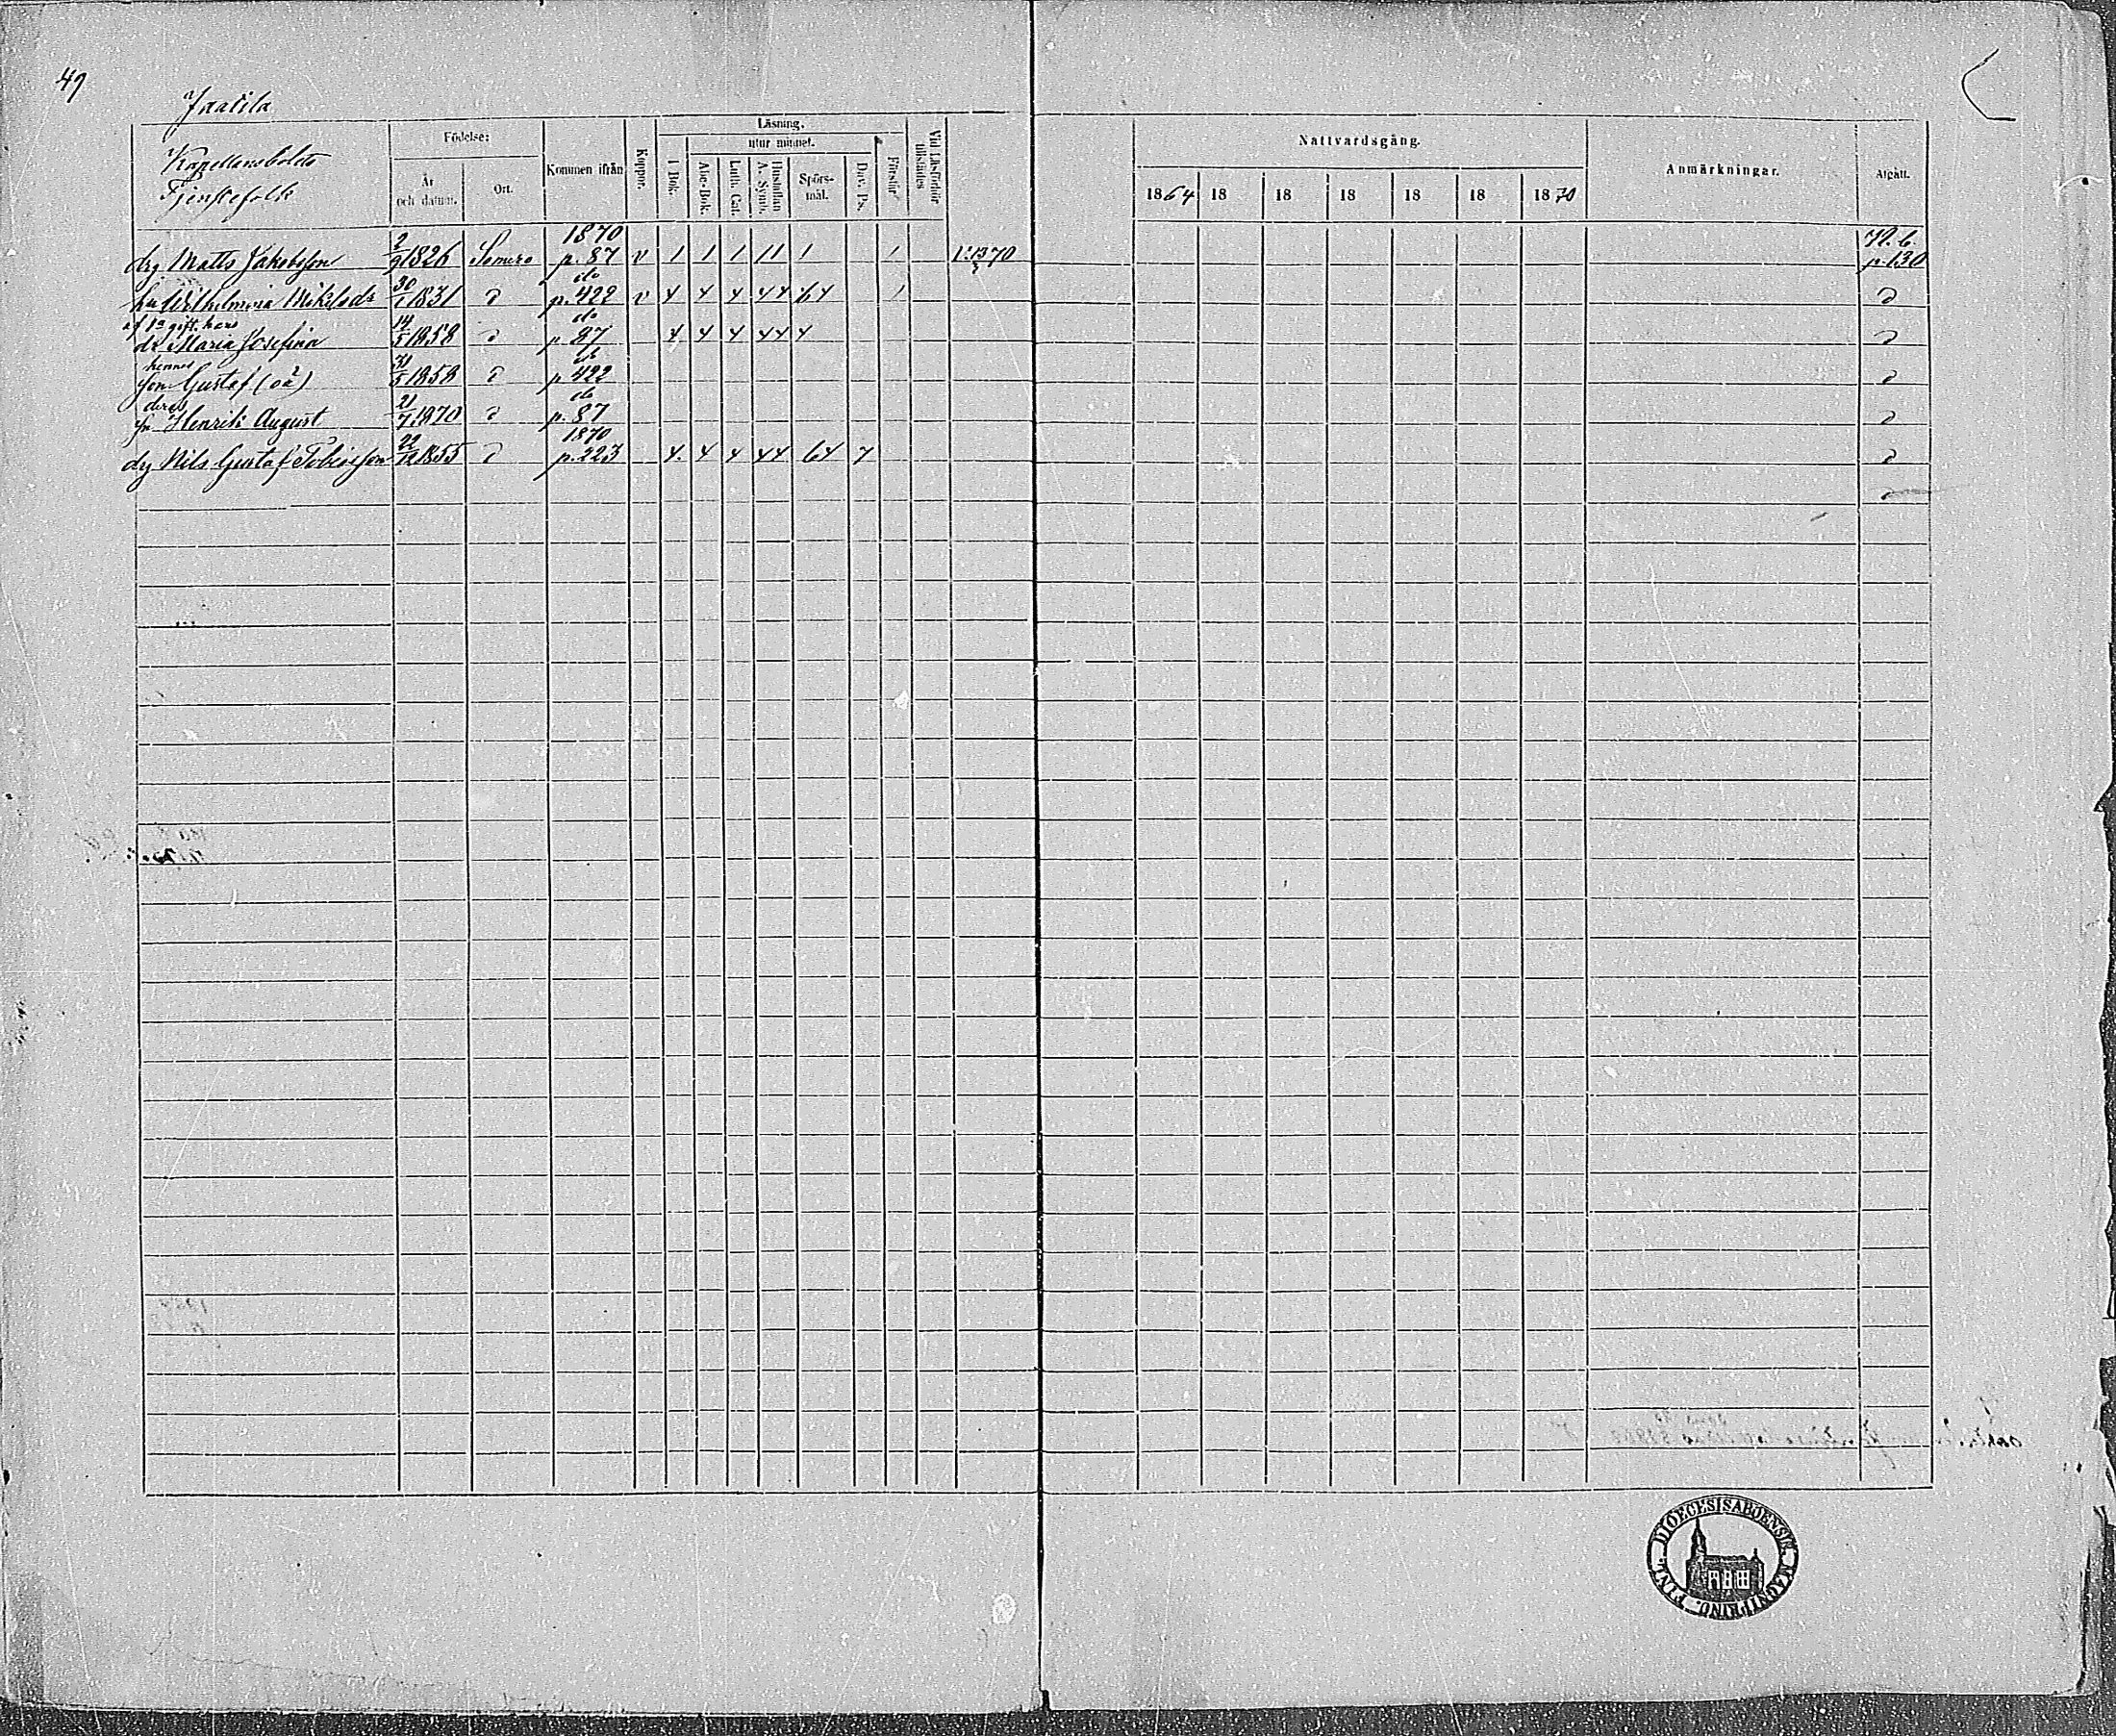 49
Jaatila
Kapellansbolets
Tjenstefolk
Födelse:
År
och datum.
Ort.
Kommen ifrån
Koppor.
Läsning.
utur minnet.
I Bok.
Abc-Bok.
Luth. Cat.
Hustaflan
A. Symb.
Spörs-
mål.
Dav. Ps.
Förstår
Vid Läsförhör
tillstädes
Nattvardsgång.
1864 18 18 18 18 18 1870
Anmärkningar.
Afgått.
1870
drg Matts Jakobsson 2/9 1826 Somero p. 87 v 1 1 1 11 1 1 p. 130
do
hu Wilhelmina Mikelsdr 30/1 1831 d p. 422 v 4 4 4 44 64 1 d
af 1a gift. hans do
dr Maria Josefina 14/5 1858 d p 87 4 4 4 44 4 d
hennes do
son Gustaf (oä) 31/5 1858 d p 422 d
deras do
sn Henrik August 21/7 1870 d p. 87 d
1870
drg Nils Gustaf 22/12 1855 d p. 223 4. 4 4 44 64 7 d
DIOECESIS ABOENSIS MAGNI PRINC. FINL.